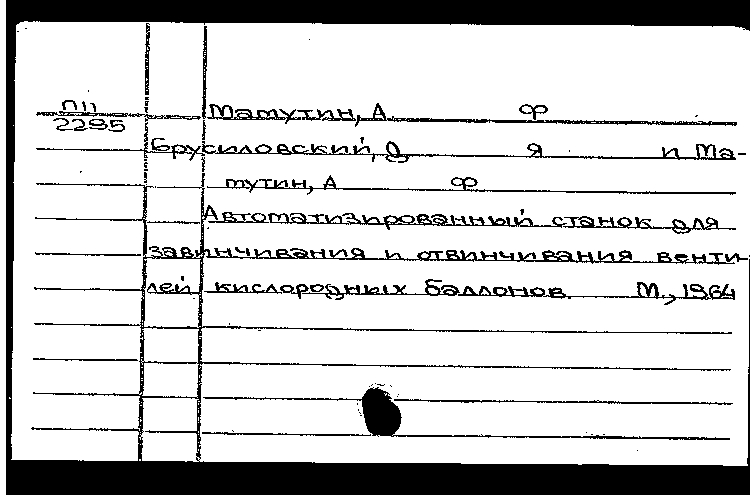 П11
2295
Матутин, А. Ф
Брусиловский, Д. Я и Ма-
тутин, А Ф
Автоматизированный станок для
завинчивания и отвинчивания венти-
лей кислородных баллонов. М., 1964